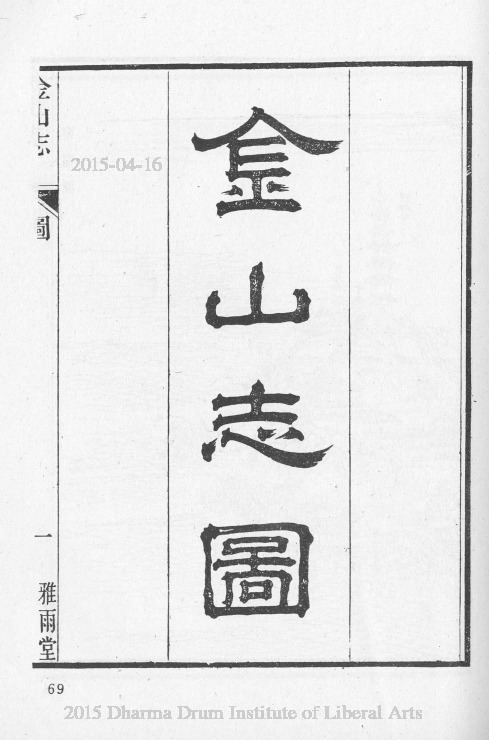 金山志圖
金山志
圖
一
雅雨堂
2015-04-16
69
2015 Dharma Drum Institute of Liberal Arts